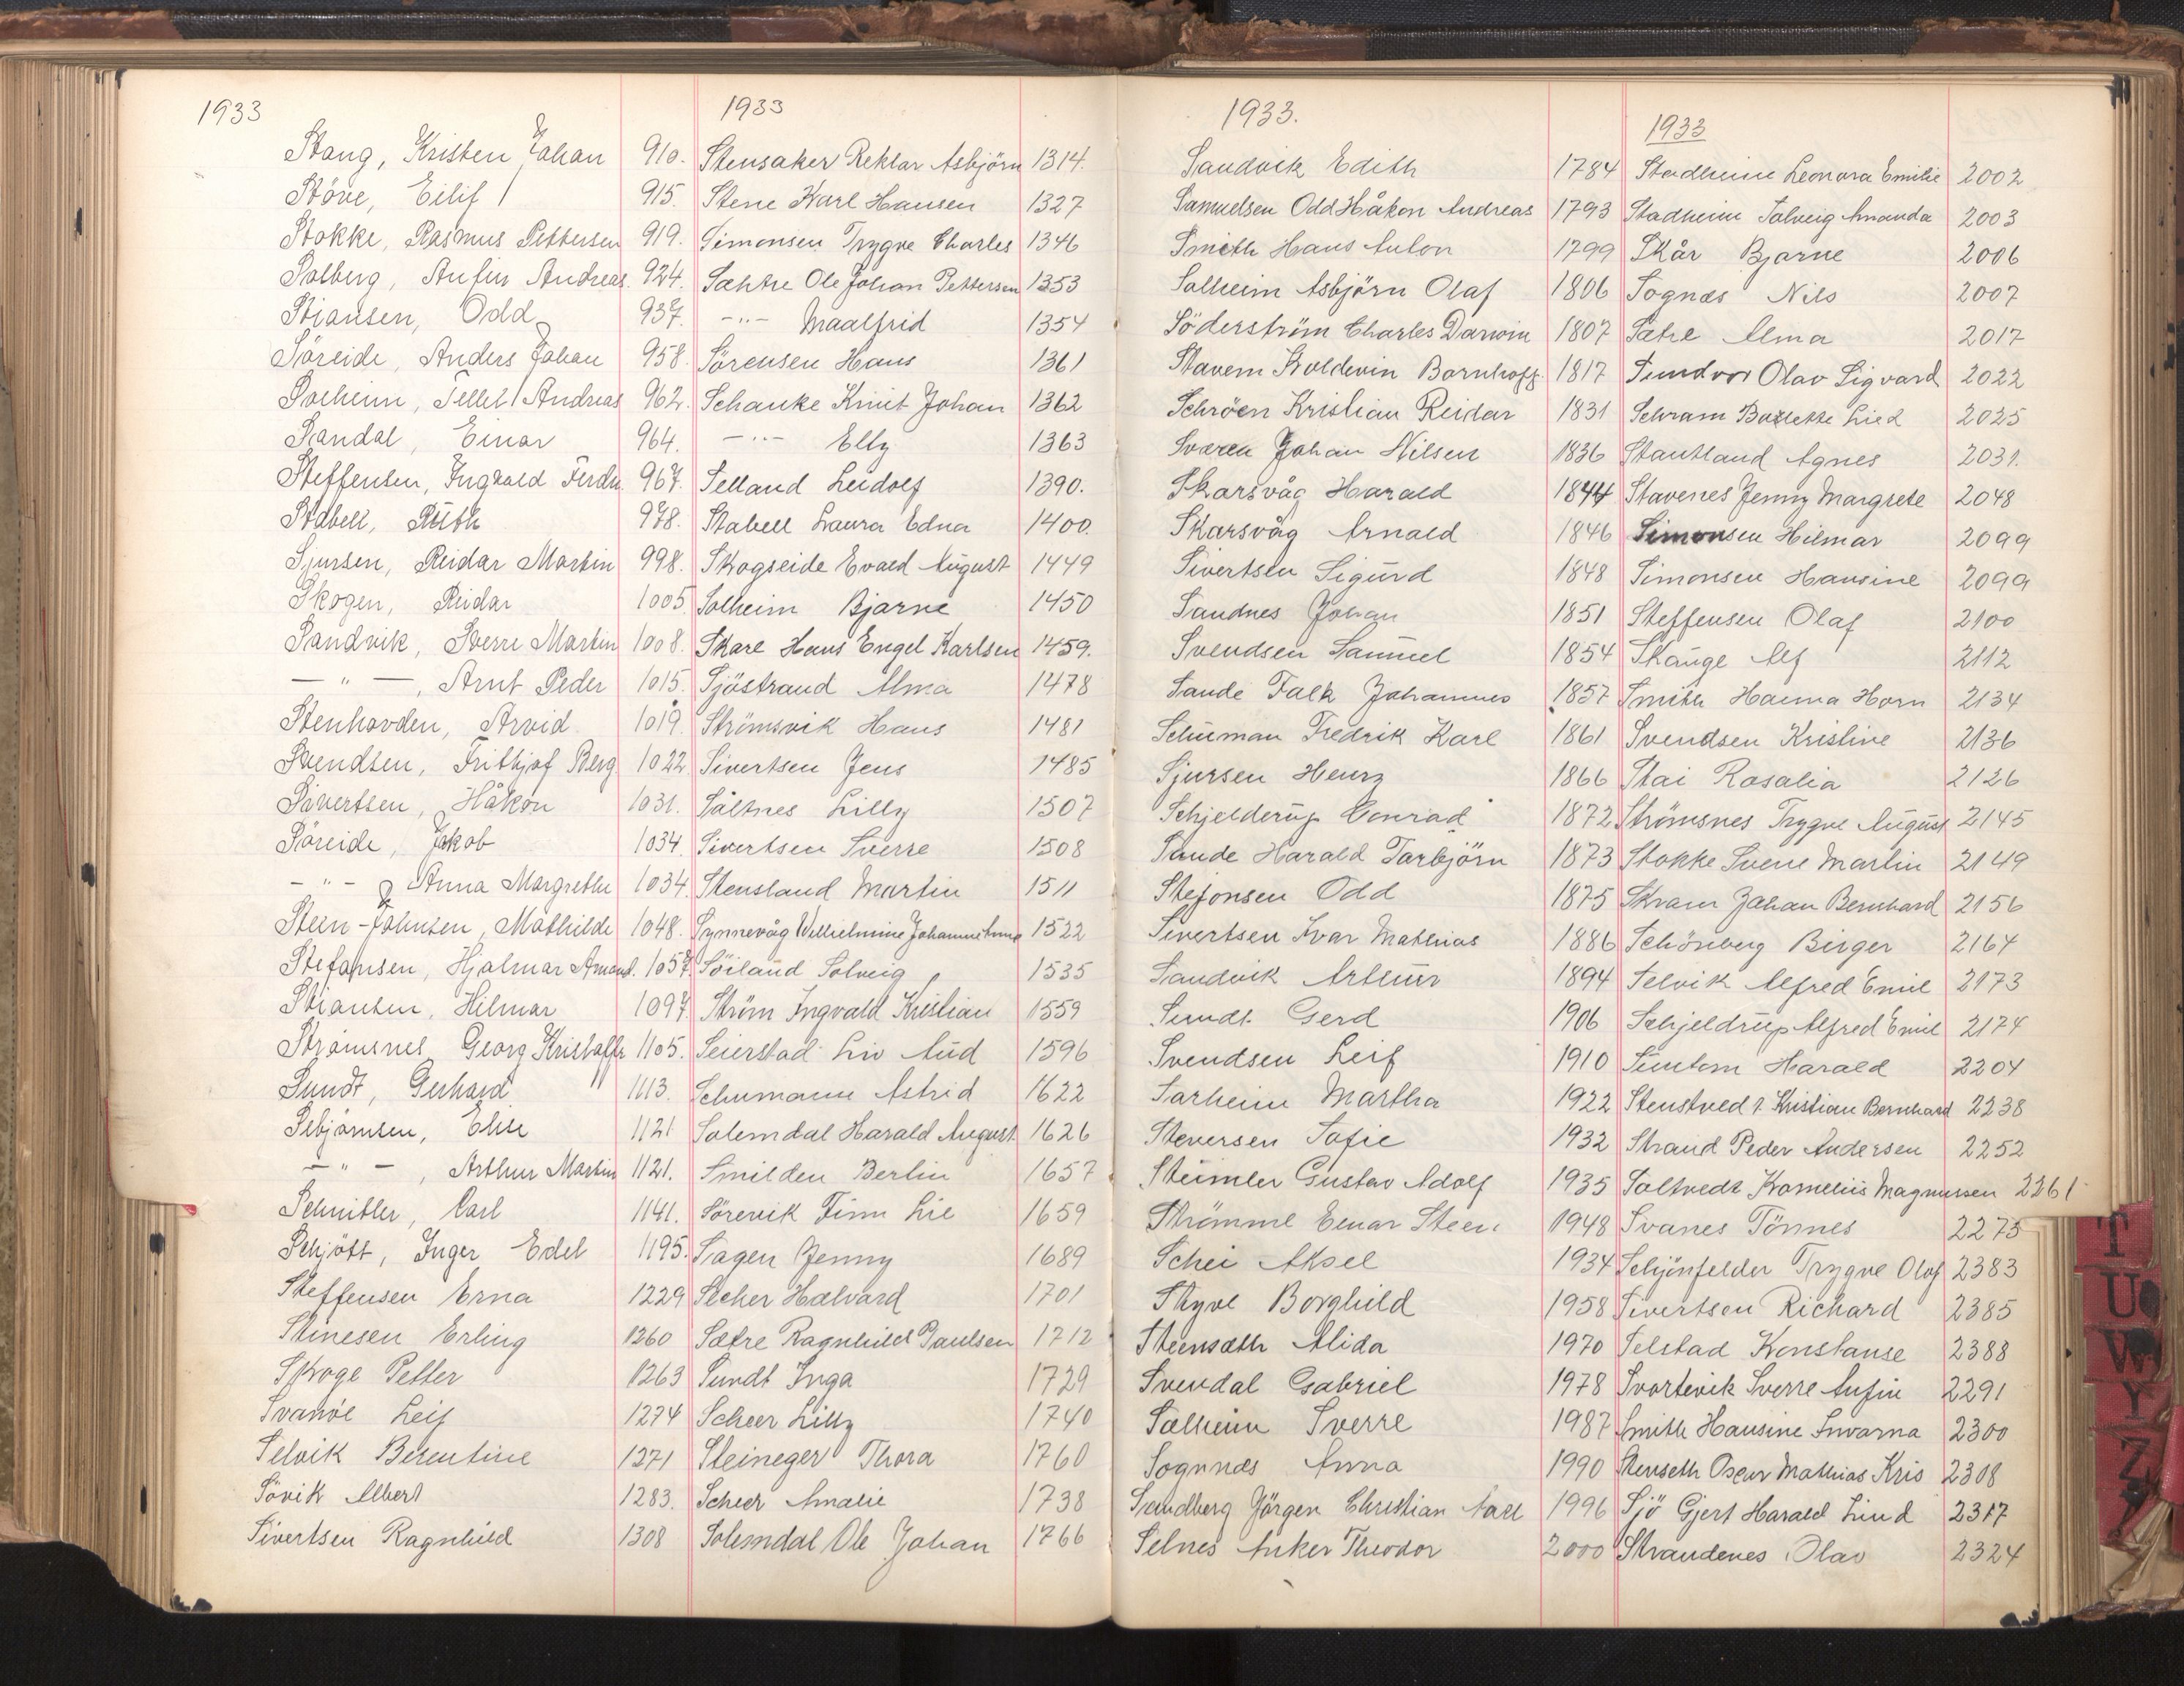 1933
Stang, Kristen Johan 910.
Støve, Eilif 915.
Stokke, Rasmus Pettersen 919.
Solberg, Anfin Andreas. 924.
Stiansen, Odd 937.
Söreide, Anders Johan 958.
Solheim, Tellef Andreas 962.
Sandal, Einar 964.
Steffensen, Ingvald Ferdn. 967.
Stabell, Ruth 978.
Sjursen, Reidar Martin 998.
Skogen, Reidar 1005
Sandvik, Sverre Martin 1008.
— " —, Arnt Peder 1015.
Stenhovden, Arvid 1019.
Svendsen, Frithjof Berg 1022
Sivertsen, Håkon 1031.
Söreide, Jakob 1034.
- " - Anna Margrethe 1034.
Steen-Johnsen, Mathilde 1048.
Stefansen, Hjalmar Amand. 1057.
Stiansen, Hilmar 1097
Strømsnes Georg Kristoffr 1105.
Sundt, Gerhard 1113.
Sebjørnsen, Elise 1121
— " —, Arthur Martin 1121.
Schnitler, Carl 1141.
Schjött, Inger Edel 1195.
Steffensen Erna 1229
Stinesen Erling 1260
Skoge Petter 1263
Svanöe Leif 1274
Selvik Berentine 1271
Sövik Albert 1283.
Sivertsen Ragnhild 1308
1933
Stensaker Reklar Asbjörn 1314.
Stene Karl Hansen 1327
Simonsen Trygve Charles 1346
Sæhtre Ole Johan Pettersen 1353
- " - Maalfrid 1354
Sörensen Hans 1361
Schanke Knut Johan 1362
- " - Elly 1363
Selland Leidolf 1390.
Stabell Laura Edna 1400.
Skogseide Evald August 1449
Solheim Bjarne 1450
Skare Hans Engel Karlsen 1459.
Sjöstrand Alma 1478
Strömsvik Hans 1481
Sivertsen Jens 1485
Såltnes Lilly 1507
Sivertsen Sverre 1508
Stensland Martin 1511
Synnevåg Wilhelmine Johanne Anna 1522
Söiland Solveig 1535
Ström Ingvald Kristian 1559
Seierstad Liv Aud 1596
Schumann Astrid 1622
Solemdal Harald August 1626
Smilden Berlin 1657
Sörevik Finn Lie 1659
Sagen Jenny 1689
Secher Halvard 1701
Sætre Ragnhild Paulsen 1712
Sundt Inga 1729
Scheer Lilly 1740
Steineger Thora 1760
Scheer Amalie 1738
Solemdal Ole Johan 1766
1933.
Sandvik Edith 1784
Samuelsen Odd Håkon Andreas 1793
Smith Hans Anton 1799
Solheim Asbjörn Olaf 1806
Söderström Charles Darwin 1807
Stavem Woldevin Bornhoff 1817
Schröen Kristian Reidar 1831
Svaren Johan Nilsen 1836
Skarsvåg Harald 1844
Skarsvåg Arnald 1846
Sivertsen Sigurd 1848
Sandnes Johan 1851
Svendsen Samuel 1854
Sande Falk Johannes 1857
Schuman Fredrik Karl 1861
Sjursen Henry 1866
Schjelderup Conrad 1872
Sande Harald Torbjörn 1873
Stefonsen Odd 1875
Sivertsen Ivar Mathias 1886
Sandvik Arthur 1894
Sundt Gerd 1906
Svendsen Leif 1910
Sørheim Martha 1922
Steversen Sofie 1932
Steimler Gustav Adolf 1935
Strömme Einar Steen 1948
Schei Aksel 1934
Styve Borghild 1958
Steensæth Alida 1970
Svendal Gabriel 1978
Sælheim Sverre 1987
Sognnæs Anna 1990
Sandberg Jörgen Christian Aall 1996
Selnes Anker Theodor 2000
1933
Stadheim Leonora Emilie 2002
Stadheim Solveig Amanda 2003
Skår Bjarne 2006
Sognæs Nils 2007
Sætre Alma 2017
Sundvor Olav Sigvard 2022
Schram Bozlette Lied 2025
Stautland Agnes 2031.
Stavenes Jenny Margrete 2048
Simonsen Hilmar 2099
Simonsen Hansine 2099
Steffensen Olaf 2100
Skauge Alf 2112
Smith Hanna Horn 2134
Svendsen Kristine 2136
Stai Rosalia 2126
Strömsnes Trygve August 2145
Stokke Svene Martin 2149
Skram Johan Bernhard 2156
Schönberg Birger 2164
Selvik Alfred Emil 2173
Schjeldrup Alfred Emil 2174
Simtom Harald 2204
Stenstved Kristian Bernhard 2238
Strand Peder Andersen 2252
Soltvedt Kornelius Magnussen 2261
Svanes Tönnes 2275
Schjönfelder Trygve Olaf 2383
Sivertsen Richard 2385
Selstad Konstanse 2388
Svortevik Sverre Anfin 2291
Smith Hansine Invarna 2300
Stenseth Oscar Mathias Kris 2308
Sjö Gjert Harald Lind 2317
Strandenes Olav 2324
T
U
W
Y
Z